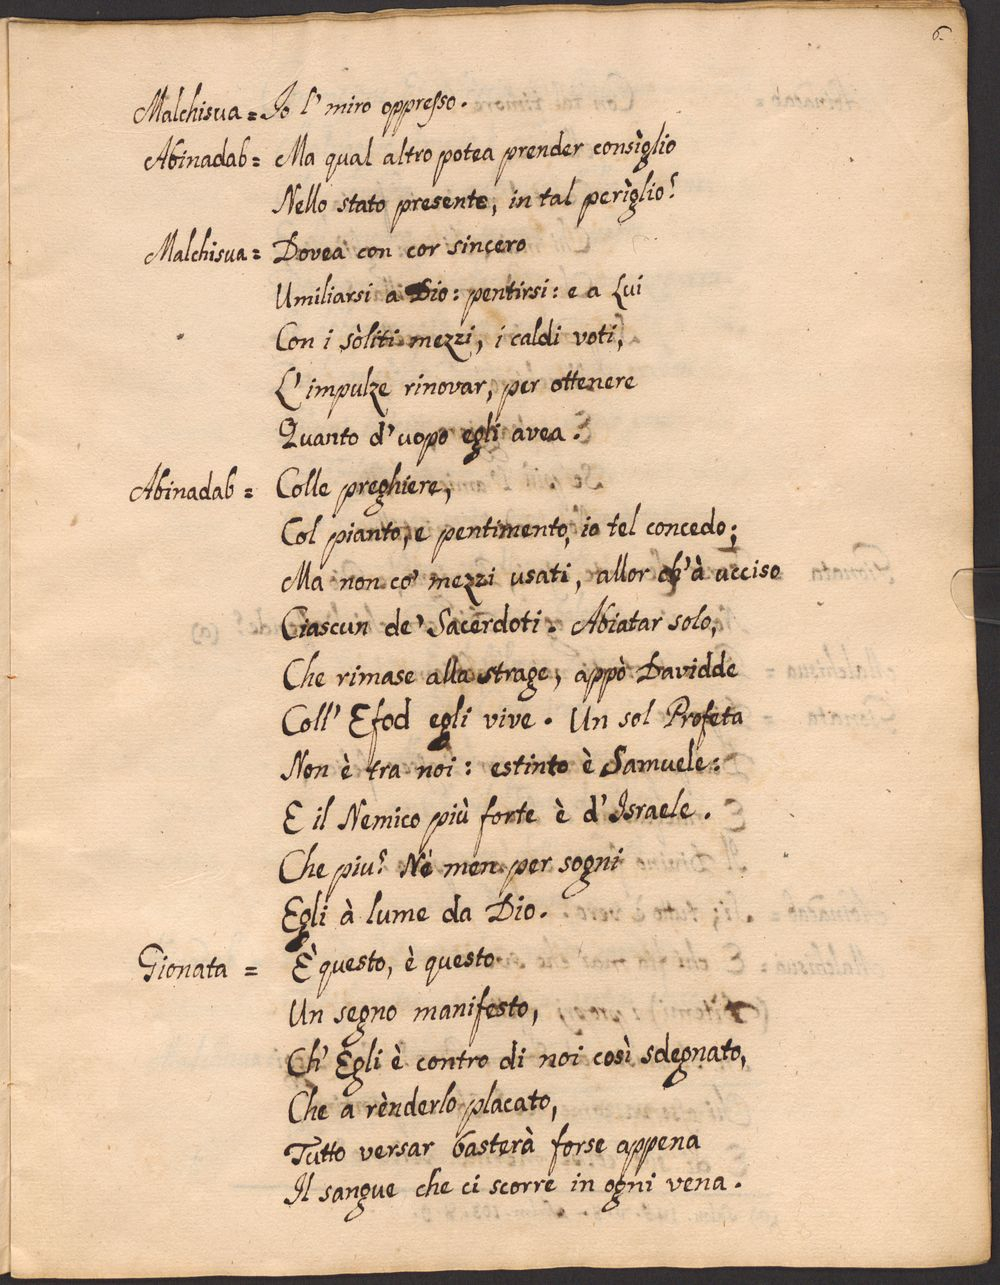 6.
Malchisua = Io l' miro oppresso.
Abinadab = Ma qual altro potea prender consìglio
Nello stato presente, in tal perìglio?
Malchisua = Dovea con cor sincero
Umiliarsi a Dio: pentirsi: e a Lui
Con i sòliti mezzi, i caldi voti,
L'impulze rinovar, per ottenere
Quanto d'uopo egli avea.
Abinadab = Colle preghiere,
Col pianto, e pentimento, io tel concedo;
Ma non co' mezzi usati, allor ch'à ucciso
Ciascun de' Sacerdoti. Abiatar solo,
Che rimase alla strage, appò Davidde
Coll' Efod egli vive. Un sol Profeta
Non è tra noi: estinto è Samuele:
E il Nemico più forte è d'Israele.
Che piu? Nè men per sogni
Egli à lume da Dio.
Gionata = È questo, è questo
Un segno manifesto,
Ch' Egli è contro di noi così sdegnato,
Che a rènderlo placato,
Tutto versar basterà forse appena
Il sangue che ci scorre in ogni vena.